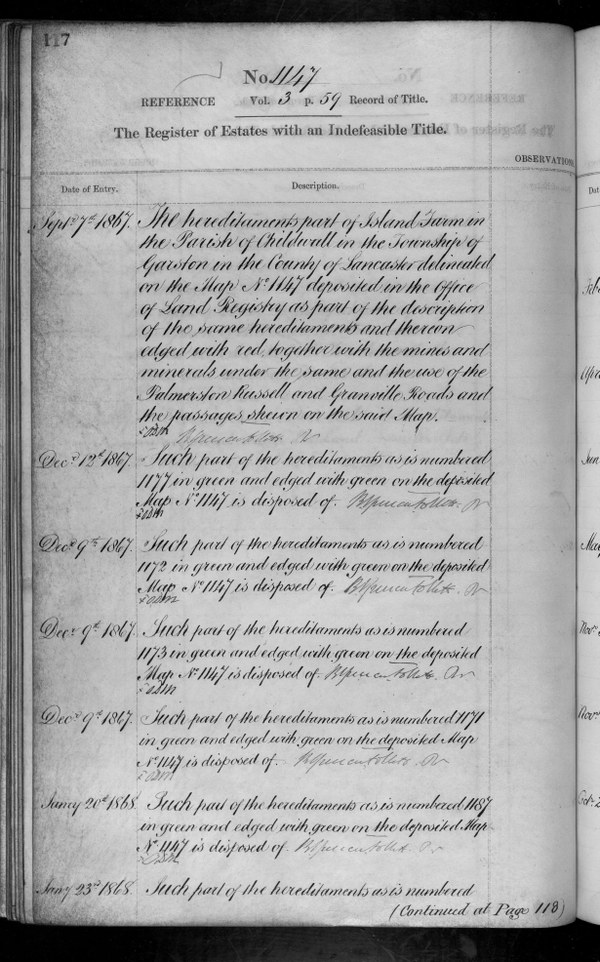 117
No. 1147
REFERENCE Vol. 3 p. 59 Record of Title.
The Register of Estates with an Indefeasible Title.
OBSERVATIONS
Date of Entry.
Description.
Sept. 7th 1867. The hereditaments part of Island Farm in
the Parish of Childwall in the Township of
Garston in the County of Lancaster delineated
on the Map No. 1147 deposited in the Office
of Land Registry as part of the description
of the same hereditaments and thereon
edged with red, together with the mines and
minerals under the same and the use of the
Palmerston Russell and Granville Roads and
the passages shewn on the said Map.
Decr. 12th 1867. Such part of the hereditaments as is numbered
1177 in green and edged with green on the deposited
Map No. 1147 is disposed of.
Decr. 9th 1867. Such part of the hereditaments as is numbered
1172 in green and edged with green on the deposited
Map No. 1147 is disposed of.
Decr. 9th 1867. Such part of the hereditaments as is numbered
1173 in green and edged with green on the deposited
Map No. 1147 is disposed of.
Decr. 9th 1867. Such part of the hereditaments as is numbered 1171
in green and edged with green on the deposited Map
No. 1147 is disposed of.
Jany 20th 1868. Such part of the hereditaments as is numbered 1187
in green and edged with green on the deposited Map
No. 1147 is disposed of.
Jany 23rd 1868. Such part of the hereditaments as is numbered
(Continued at Page 118)